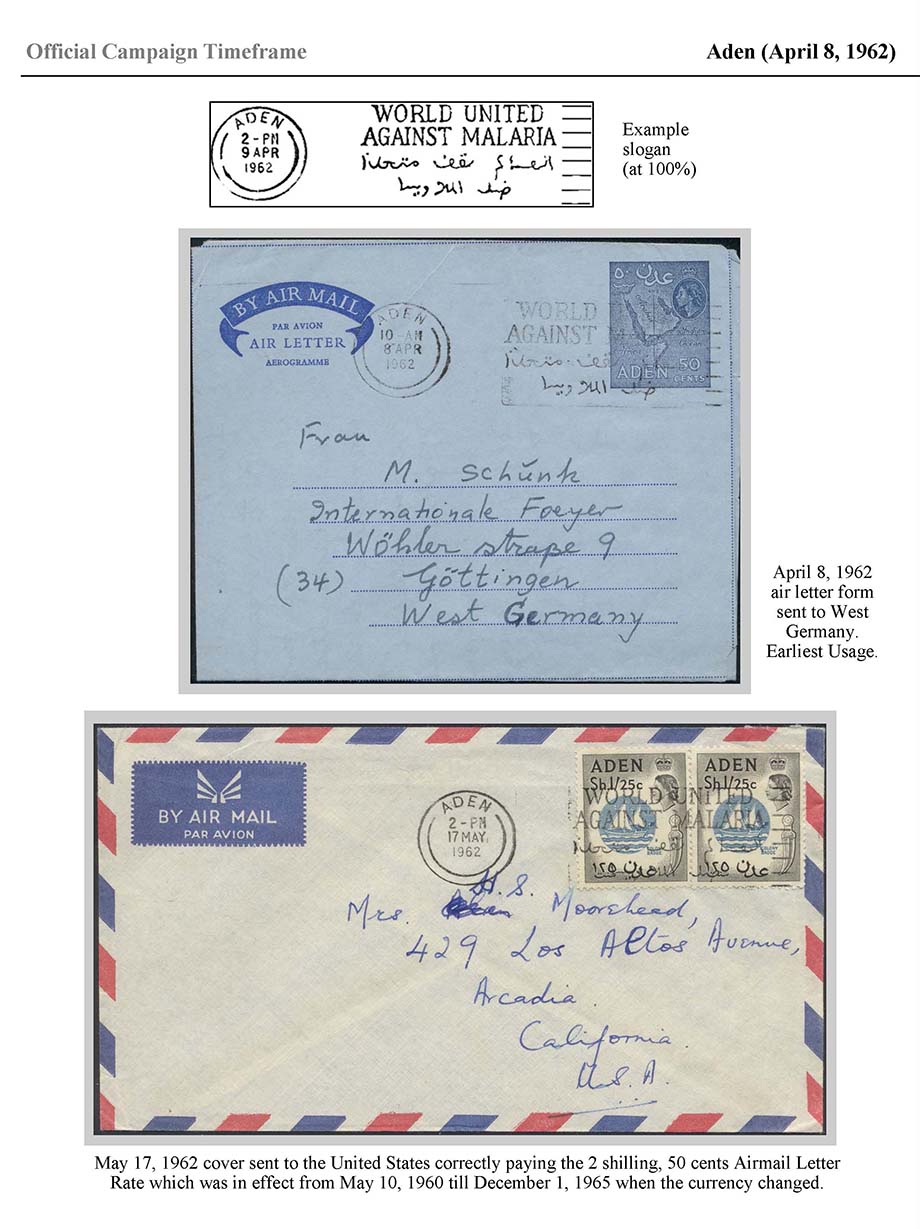 Official Campaign Timeframe
Aden (April 8, 1962)
ADEN
2-PM
9 APR
1962
WORLD UNITED
AGAINST MALARIA
Example
slogan
(at 100%)
BY AIR MAIL
PAR AVION
AIR LETTER
AEROGRAMME
ADEN
10-AM
8 APR
1962
WORLD
AGAINST
٥٠ عدن
ADEN 50
CENTS
Frau
M. Schŭnk
Internationale Foeyer
Wöhler straße 9
(34) Göttingen
West Germany
April 8, 1962
air letter form
sent to West
Germany.
Earliest Usage.
BY AIR MAIL
PAR AVION
ADEN
2-PM
17 MAY
1962
ADEN
Sh.1/25c
COLONY
BADGE
١٢٥ عدن
ADEN
Sh.1/25c
COLONY
BADGE
١٢٥ عدن
WORLD UNITED
AGAINST MALARIA
Mrs. H.S. Moorehead,
429 Los Altos Avenue,
Arcadia.
California.
U.S.A.
May 17, 1962 cover sent to the United States correctly paying the 2 shilling, 50 cents Airmail Letter
Rate which was in effect from May 10, 1960 till December 1, 1965 when the currency changed.